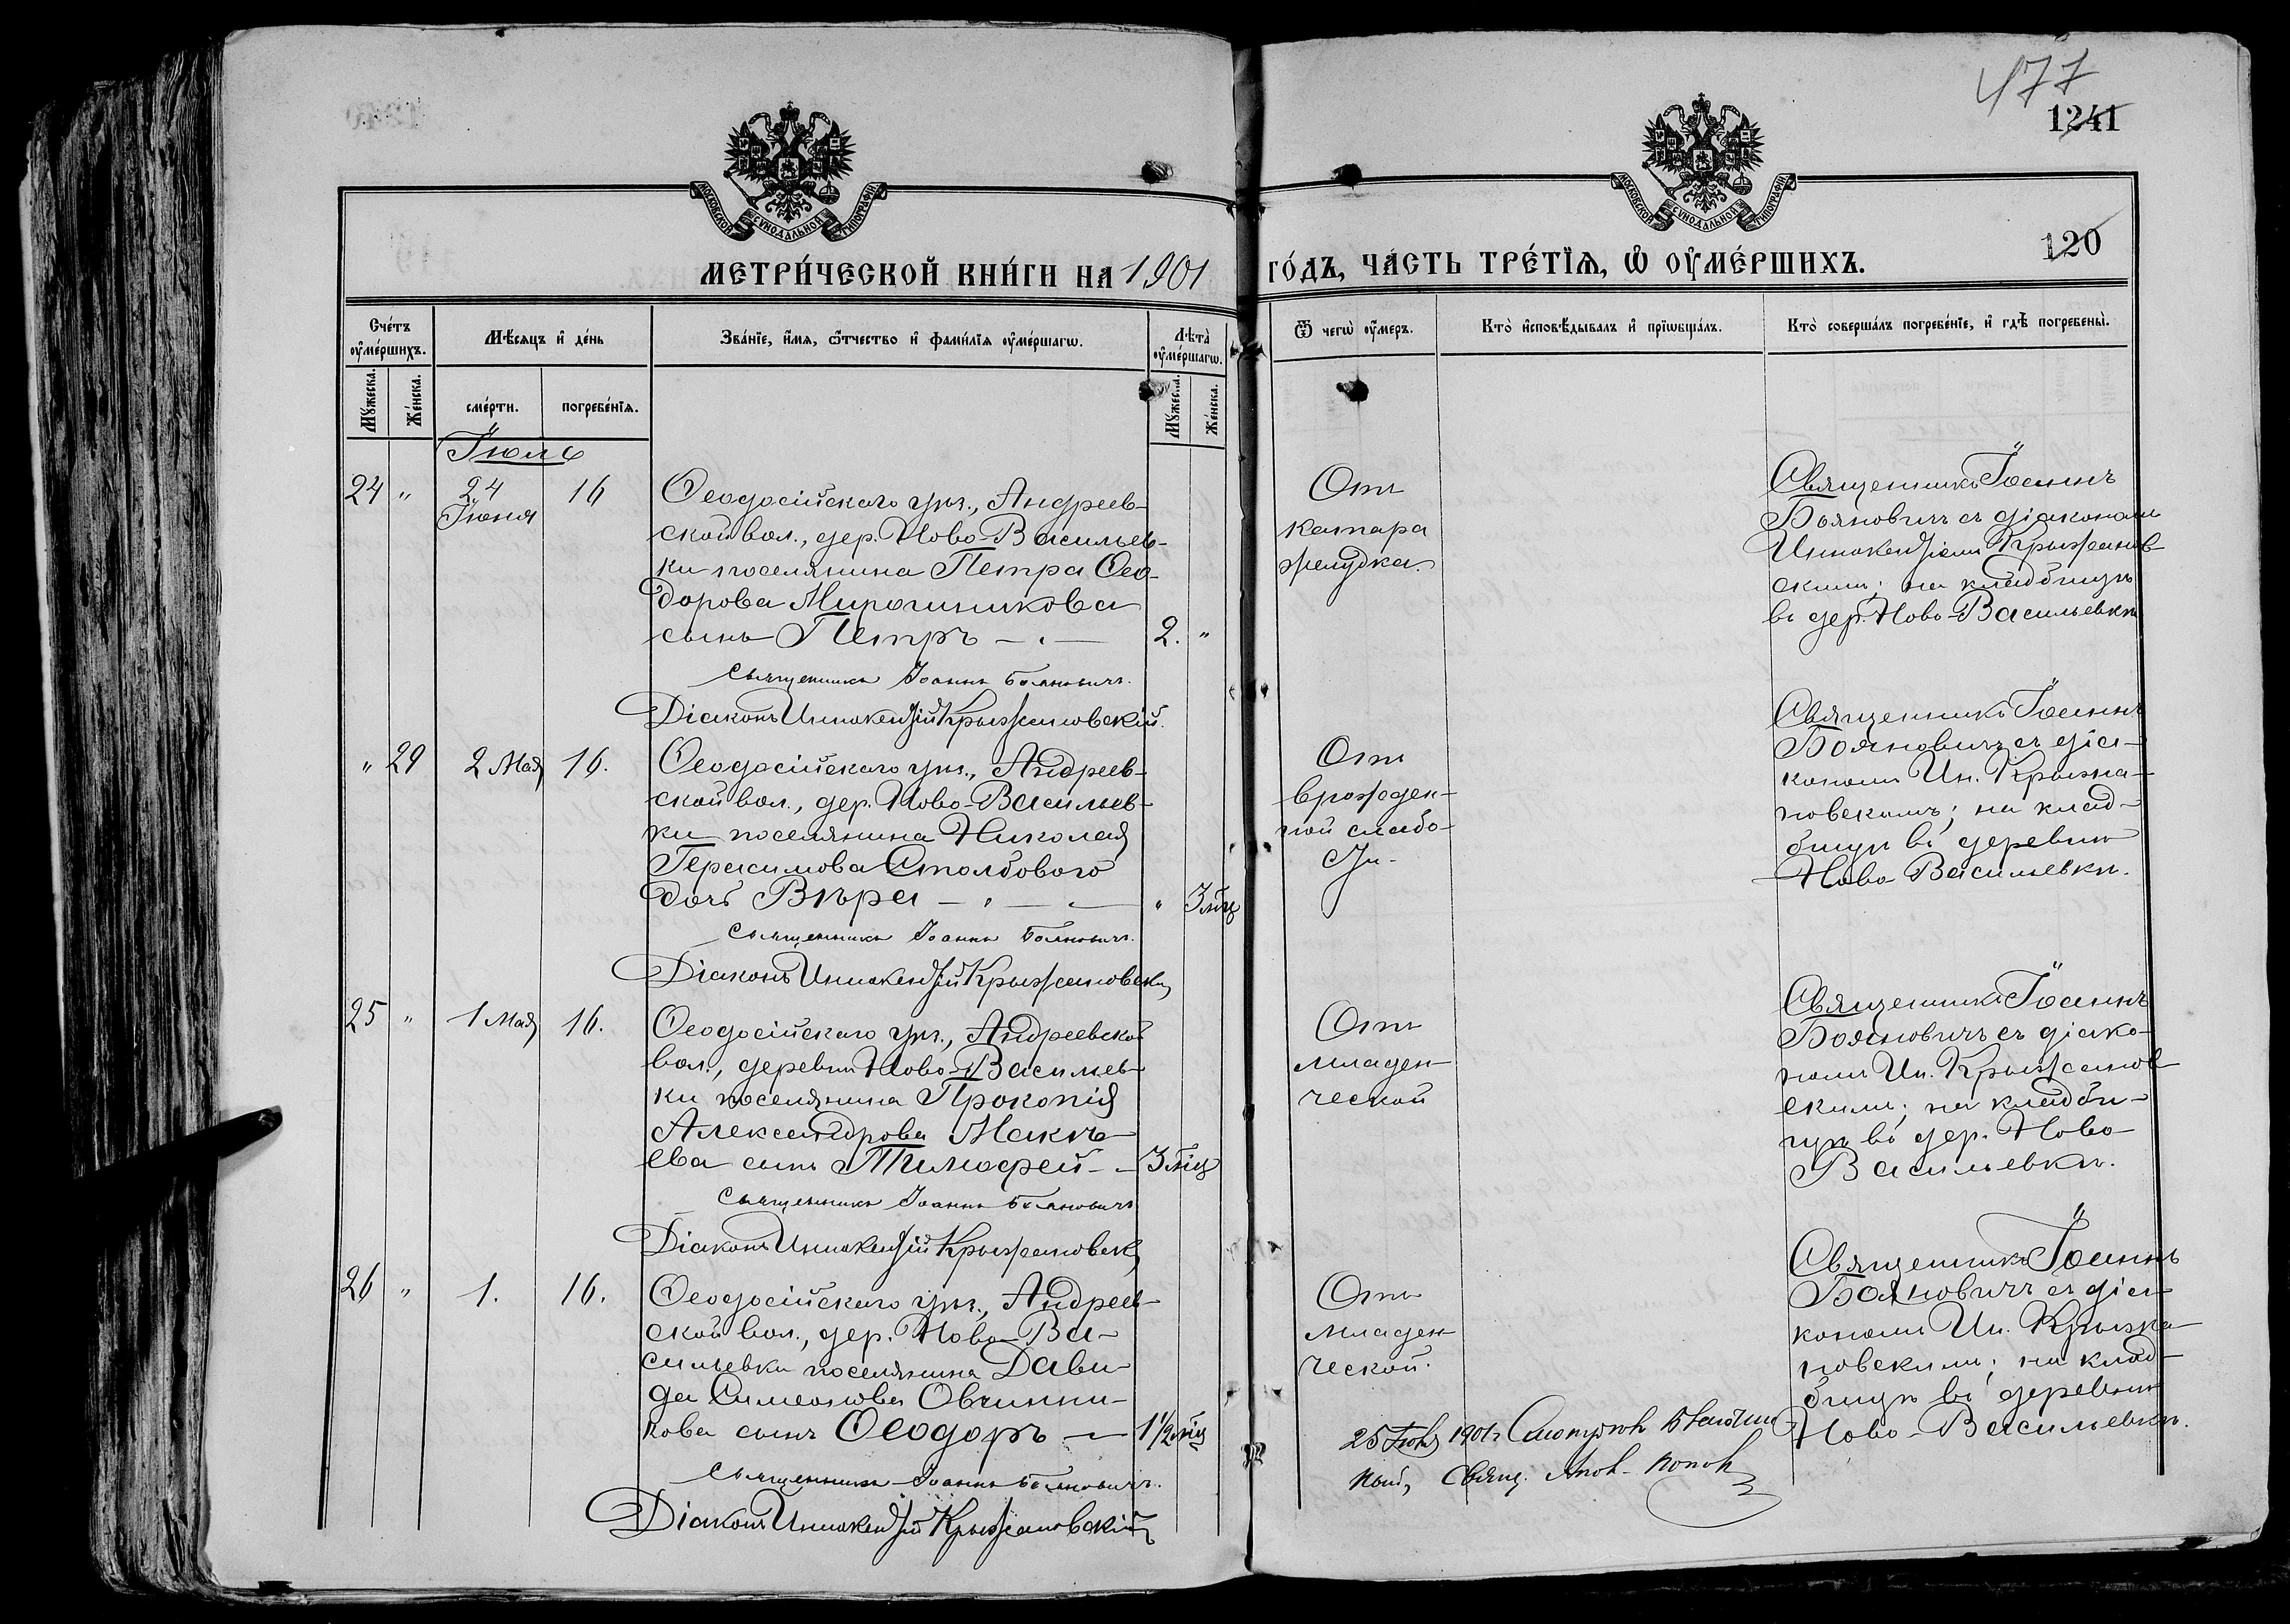 477
1241
120
МОСКОВСКОЙ СУНОДАЛЬНОЙ ТИПОГРАФІИ
МОСКОВСКОЙ СУНОДАЛЬНОЙ ТИПОГРАФІИ
МЕТРИ́ЧЕСКОЙ КНИ́ГИ НА 1901 ГО́ДЪ, ЧА́СТЬ ТРЕ́ТЇѦ, Ѡ҆ ОУ҆МЕ́РШИХЪ.
Сче́тъ оу҆ме́ршихъ.
Мѣ́сяцъ и҆ де́нь
Зва́нїе, и҆́мя, ѻ҆́тчество и҆ фами́лїя оу҆ме́ршагѡ.
Лѣта̀ оу҆ме́ршагѡ.
Ѿ чегѡ̀ оу҆́меръ.
Кто̀ и҆сповѣ́дывалъ и҆ прїѡбща́лъ.
Кто̀ соверша́лъ погребе́нїе, и҆ гдѣ̀ погребены̀.
Мꙋ́жеска.
Же́нска.
сме́рти.
погребе́нїя.
Мꙋ́жеска.
Же́нска.
Іюль
24 " 24 Іюня 16
Ѳеодосійскаго уѣз., Андреев-
ской вол., дер. Ново-Васильев-
ки поселянина Петра Ѳео-
дорова Мирошникова
сынъ Петръ — . — 2. "
Священникъ Іоаннъ Бояновичъ.
Діаконъ Иннокентій Крыжановскій.
Отъ
катара
желудка.
Священникъ Іоаннъ
Бояновичъ съ діакономъ
Иннокентіемъ Крыжанов-
скимъ; на кладбищѣ
въ дер. Ново-Васильевкѣ
" 29 2 Мая 16.
Ѳеодосійскаго уѣз., Андреев-
ской вол., дер. Ново-Васильев-
ки поселянина Николая
Герасимова Столбового
дочь Вѣра — . — . — " 3 мѣц
Священникъ Іоаннъ Бояновичъ.
Діаконъ Иннокентій Крыжановскій
Отъ
врожден-
ной слабо-
сти.
Священникъ Іоаннъ
Бояновичъ съ діа-
кономъ Ин. Крыжа-
новскимъ; на клад-
бищѣ въ деревнѣ
Ново Васильевкѣ.
25 " 1 Мая 16.
Ѳеодосійскаго уѣз., Андреевской
вол., деревни Ново-Васильев-
ки поселянина Прокопія
Александрова Макѣ-
ева сынъ Тимоѳей - — 3 мѣц
Священникъ Іоаннъ Бояновичъ
Діаконъ Иннокентій Крыжановскій
Отъ
младен-
ческой
Священникъ Іоаннъ
Бояновичъ съ діако-
номъ Ин. Крыжанов-
скимъ; на кладби-
щѣ въ дер. Ново-
Васильевкѣ.
26 " 1. 16.
Ѳеодосійскаго уѣз., Андреев-
ской вол., дер. Ново-Ва-
сильевки поселянина Дави-
да Симеонова Овчинни-
кова сынъ Ѳеодоръ — 1 1/2 мѣц
Священникъ Іоаннъ Бояновичъ.
Діаконъ Иннокентій Крыжановскій
Отъ
младен-
ческой.
Священникъ Іоаннъ
Бояновичъ съ діа-
кономъ Ин. Крыжа-
новскимъ; на клад-
бищѣ въ деревнѣ
Ново-Васильевкѣ.
1901 г.
Свящ. Попов